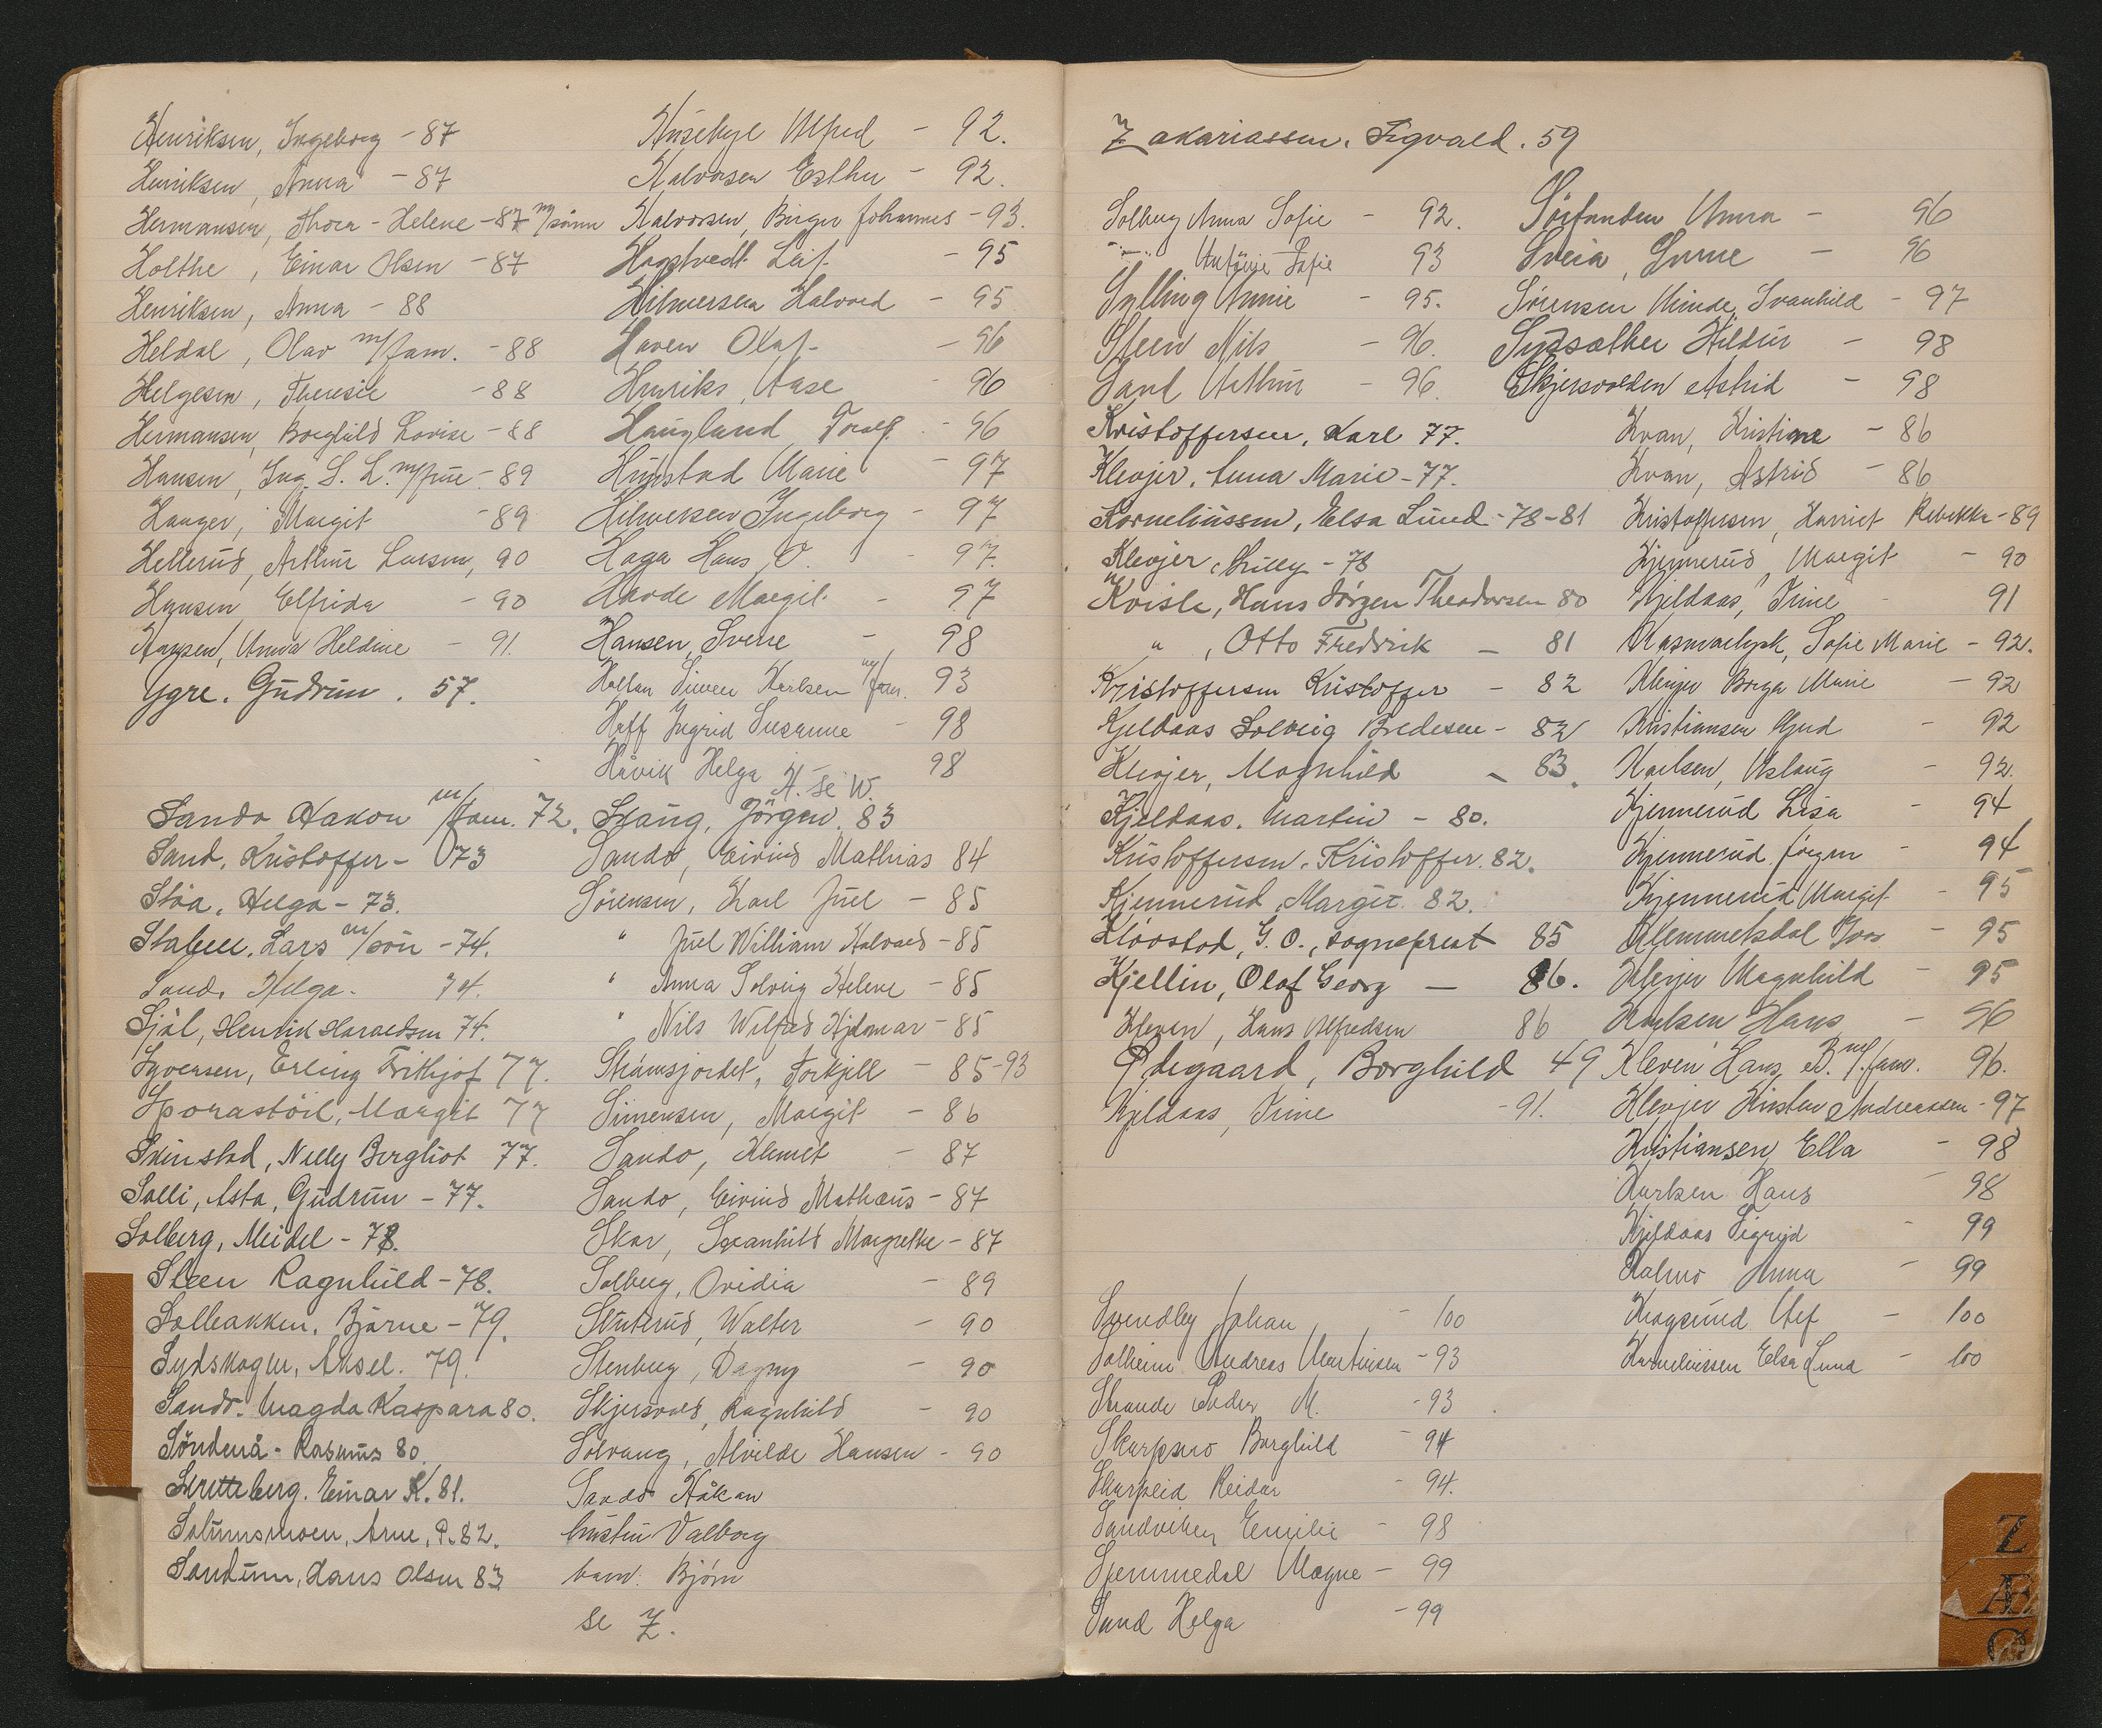 Henriksen, Ingeborg - 87
Henriksen, Anna - 87
Hermansen, Thora - Helene - 87 m/sønn
Holthe, Einar Olsen - 87
Henriksen, Anna - 88
Heldal, Olav m/fam. - 88
Helgesen, Theresie - 88
Hermansen, Borghild Lovise - 88
Hansen, Ing. S. L. m/frue - 89
Hauger, Margit - 89
Hellerud, Arthur Larsen, 90
Hansen, Elfrida - 90
Hansen, Anna Heldine - 91.
Ygre. Gudrun. 57.
Husebye Alfred - 92.
Halvorsen Esther - 92.
Halvorsen, Birger Johannes - 93.
Hogstvedt Leif - 95
Hilmersen Halvard - 95
Haven Olaf - 96
Henriks, Aase - 96
Haugland Toralf - 96
Hunstad Marie - 97
Hilmersen Ingeborg - 97
Haga Hans O. - 97.
Hovde Margit - 97
Hansen, Sverre - 98
Holtan Karlsen m/fam. 93
Hoff Ingrid Susanne - 98
Håvik Helga - 98
H. se W.
Sando Hakon m/fam. 72.
Sand, Kristoffer - 73
Støa, Helga - 73.
Stabell, Lars m/søn - 74.
Sand, Helga - 74.
Sjøl, Henrik Haraldsen 74.
Syversen, Erling Frithjof 77.
Sporastöil, Margit 77
Skinstad, Nelly Bergliot 77.
Solli, Asta, Gudrun - 77.
Solberg, Meidel - 78.
Steen Ragnhild - 78.
Solbakken, Bjarne - 79.
Sydskogen, Aksel. 79.
Sando. Magda Kaspara 80.
Söndenå - Rasmus 80.
Skretteberg. Einar K. 81.
Solumsmoen, Arne, P. 82.
Sandum, Hans Olsen 83
Skaug, Jörgen. 83
Sando, Eivind Mathias 84
Sørensen, Karl Juel - 85
" Juel William Halvard - 85
" Anna Solveig Helene - 85
" Nils Wilfred Hjalmar - 85
Strömsjordet, Torkjell - 85-93
Simensen, Margit - 86
Sando, Klemet - 87
Sando, Eivind Mathæus - 87
Skar, Svanhild Margrethe - 87
Solberg, Ovidia - 89
Stuterud, Walter - 90
Stenberg, Dagny - 90
Skjersvold, Ragnhild - 90
Solvang, Alvilde Hansen - 90
Sando Håkon
hustru Valborg
barn: Bjørn
se Z.
Zakariassen. Sigvald. 59
Solberg Anna Sofie - 92.
-"- Antonie Sofie 93
Sylling Annie - 95.
Steen Nils - 96.
Sand Arthur - 96.
Sörfanden Anna - 96
Sveia, Sverre - 96
Sörensen Minde, Svanhild - 97
Sydsæther Hildur - 98
Skjersvolden Astrid - 98
Kristoffersen, Karl 77.
Klevjer, Anna Marie - 77.
Korneliussen, Elsa Lund - 78-81
Klevjer, Lilly - 78
Kvisle, Hans Jørgen Theodorsen 80
" , Otto Fredrik - 81
Kristoffersen Kristoffer - 82
Kjeldaas Solveig Bredesen - 82
Klevjer, Magnhild - 83.
Kjeldaas. Martin - 80.
Kristoffersen. Kristoffer. 82.
Kjennerud, Margit. 82.
Klovstad, G. O., sogneprest 85
Kjellin, Olaf Georg - 86.
Kleven, Hans Alfredsen 86
Ødegaard, Borghild 49
Kjeldaas, Trine - 91.
Kvan, Kristine - 86
Kvan, Astrid - 86
Kristoffersen, Harriet Rebekka - 89
Kjennerud, Margit - 90
Kjeldaas, Trine - 91
Sofie Marie - 92.
Klevjer Borga Marie - 92
Kristiansen Gjud - 92
Karlsen, Aslaug - 92.
Kjennerud Lisa - 94
Kjennerud Jörgen - 94
Kjennerud Margit - 95
Klemmetsdal - 95
Klevjer Magnhild - 95
Karlsen Hans - 96
Kleven Hans B. m/fam. 96.
Klevjer Kirsten Andreassen - 97
Kristiansen Ella - 98
Karlsen Hans - 98
Kjeldaas Sigrid - 99
Kalmo Anna - 99
Krogsrud Alf - 100
Korneliussen Elsa Lund - 100
Svendby Johan - 100
Solheim Andreas Martinsen - 93
Strande Peder M. - 93
Skarpsno Borghild - 94
Skarpeid Reidar - 94.
Sandviken Emilie - 98
Stemmedal Magne - 99
Sand Helga - 99
Z
Æ